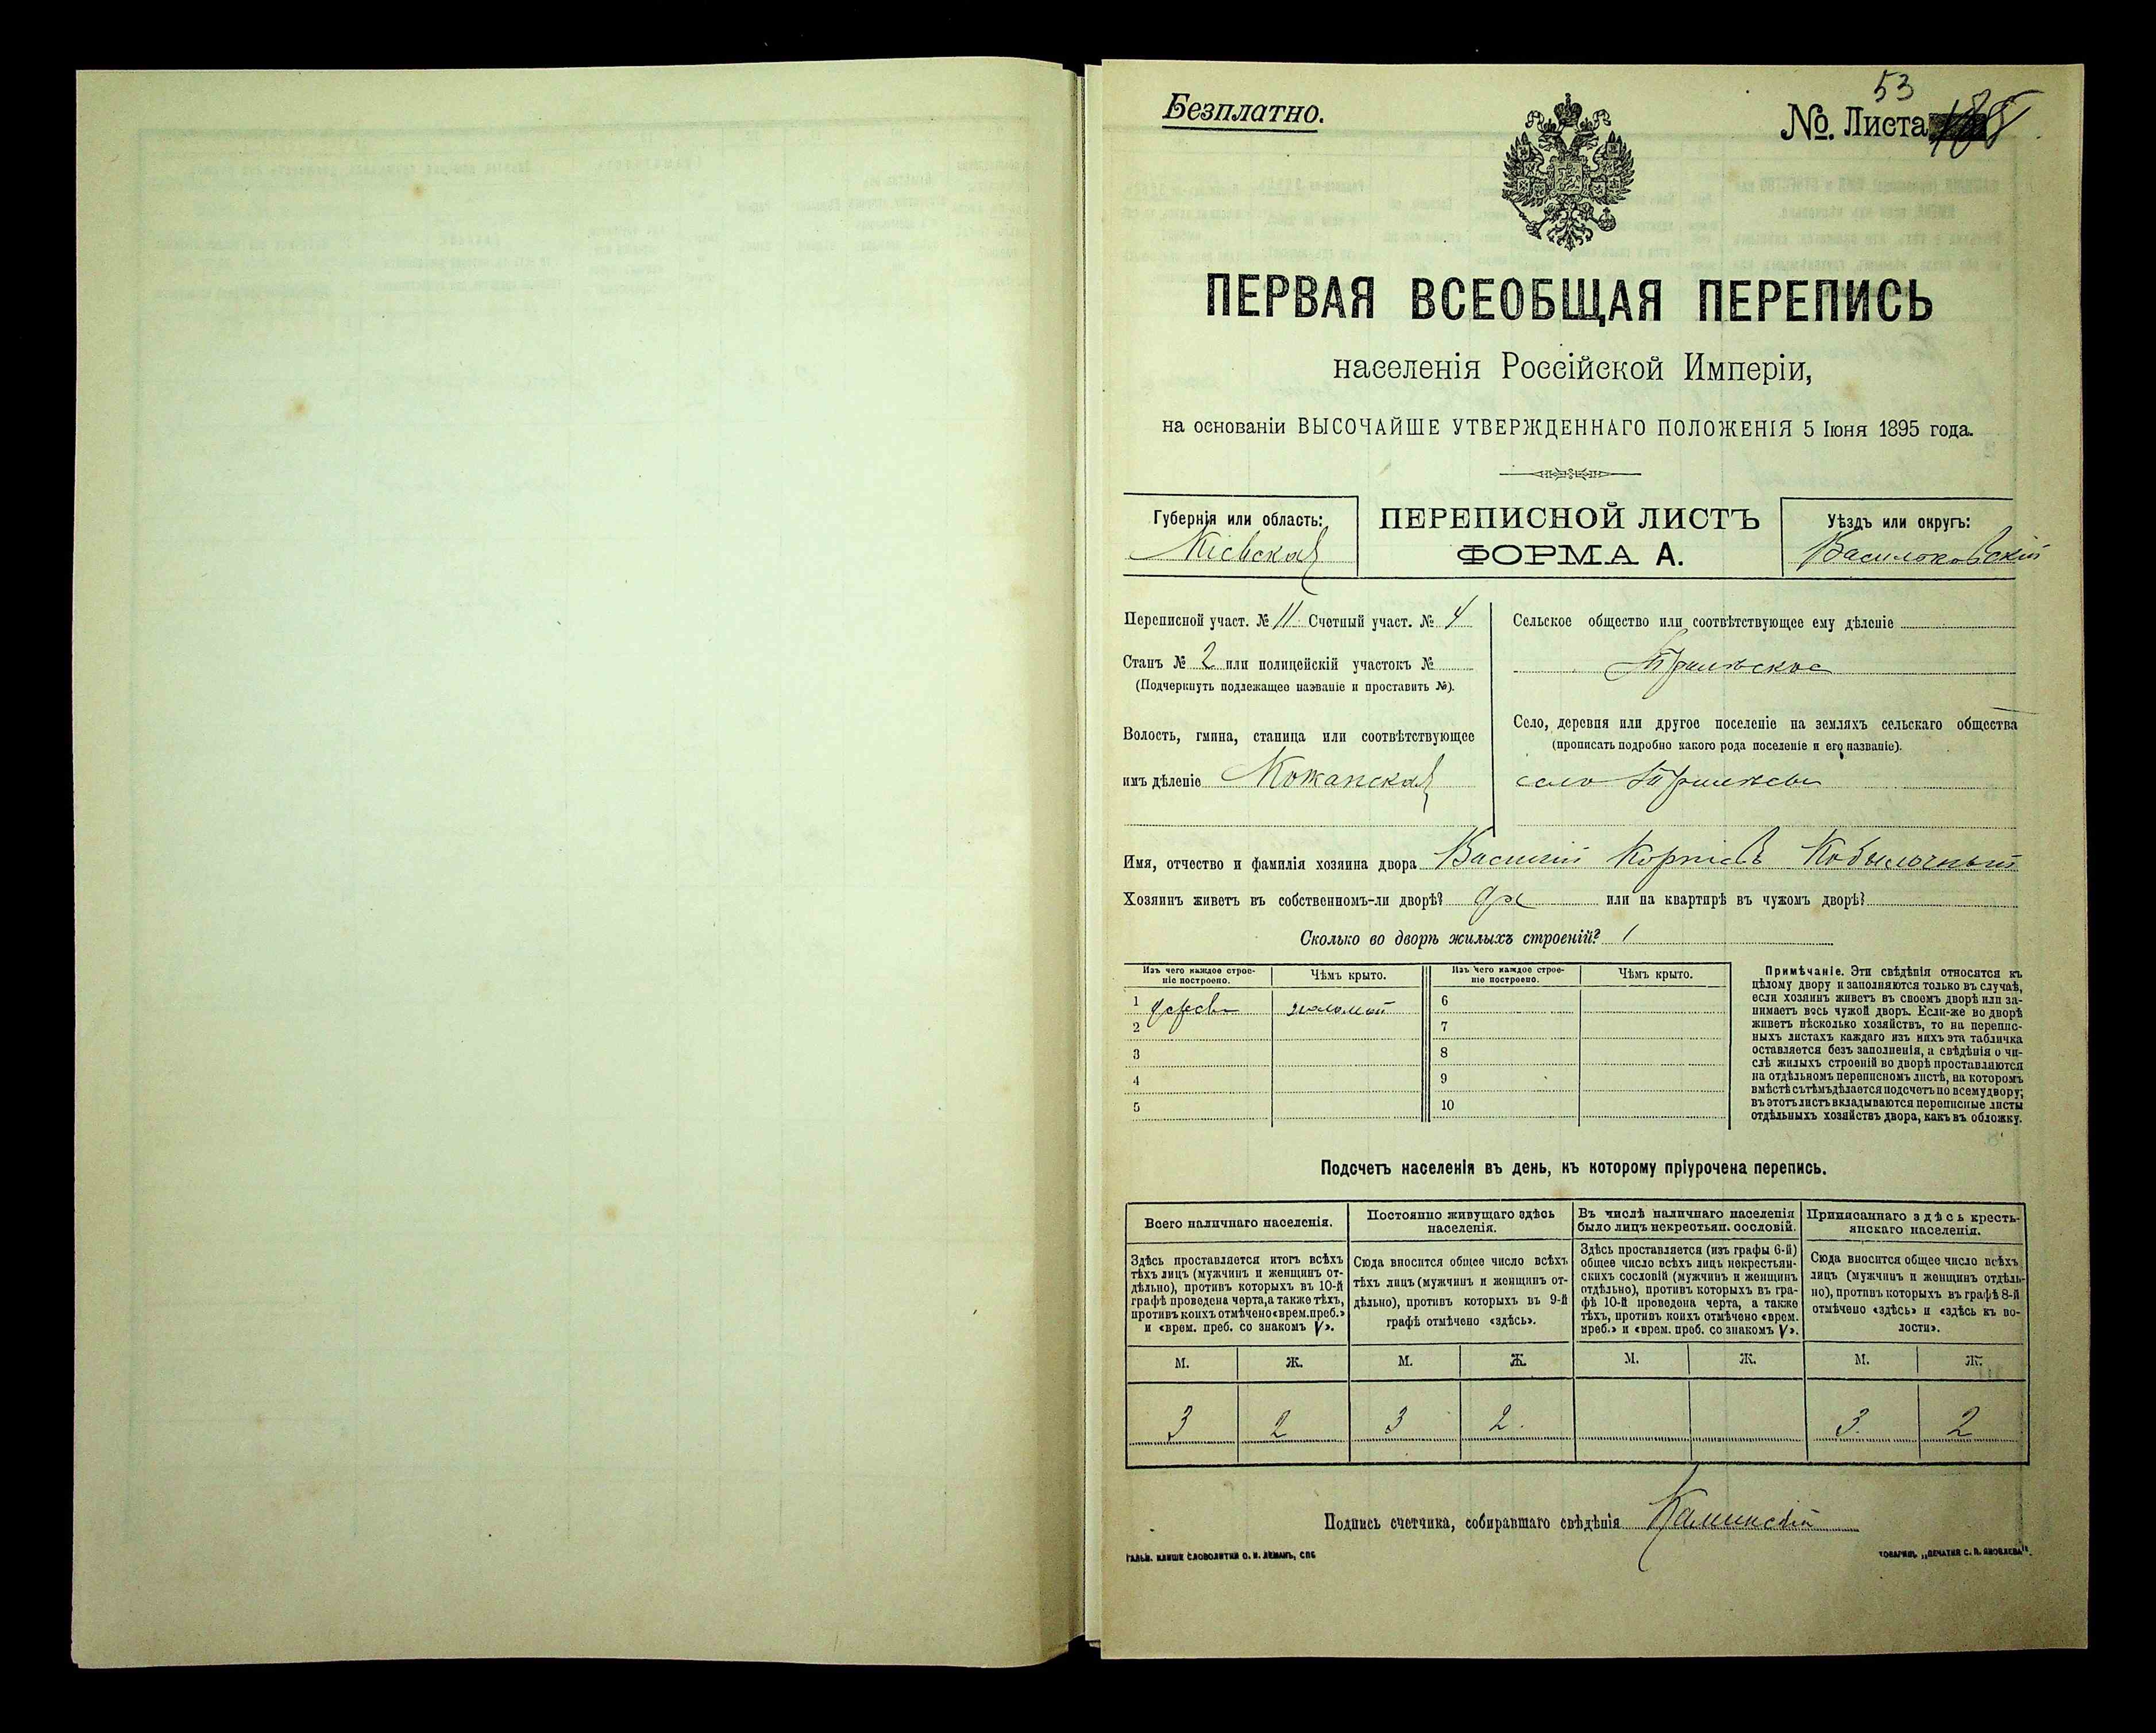 Безплатно.
53
№. Листа
ПЕРВАЯ ВСЕОБЩАЯ ПЕРЕПИСЬ
населенія Россійской Имперіи,
на основаніи ВЫСОЧАЙШЕ УТВЕРЖДЕННАГО ПОЛОЖЕНІЯ 5 Іюня 1895 года.
Губернія или область:
Кіевская
ПЕРЕПИСНОЙ ЛИСТЪ
ФОРМА А.
Уѣздъ или округъ:
Васильковскій
Переписной участ. № 11 Счетный участ. № 4
Станъ № 2 или полицейскій участокъ №
(Подчеркнуть подлежащее названіе и проставить №).
Волость, гмина, станица или соотвѣтствующее
имъ дѣленіе Кожанская
Сельское общество или соотвѣтствующее ему дѣленіе
Трилѣское
Село, деревня или другое поселеніе на земляхъ сельскаго общества
(прописать подробно какого рода поселеніе и его названіе).
село Трилѣсы
Имя, отчество и фамилія хозяина двора Василій Корніевъ Кобылочный
Хозяинъ живетъ въ собственномъ-ли дворѣ? да или на квартирѣ въ чужомъ дворѣ?
Сколько во дворѣ жилыхъ строеній? 1
Изъ чего каждое строе-
ніе построено.
Чѣмъ крыто.
Изъ чего каждое строе-
ніе построено.
Чѣмъ крыто.
1 дерева соломой 6
2 7
3 8
4 9
5 10
Примѣчаніе. Эти свѣдѣнія относятся къ
цѣлому двору и заполняются только въ случаѣ,
если хозяинъ живетъ въ своемъ дворѣ или за-
нимаетъ весь чужой дворъ. Если-же во дворѣ
живетъ нѣсколько хозяйствъ, то на перепис-
ныхъ листахъ каждаго изъ нихъ эта табличка
оставляется безъ заполненія, а свѣдѣнія о чи-
слѣ жилыхъ строеній во дворѣ проставляются
на отдѣльномъ переписномъ листѣ, на которомъ
вмѣстѣ съ тѣмъ дѣлается подсчетъ по всему двору;
въ этотъ листъ вкладываются переписные листы
отдѣльныхъ хозяйствъ двора, какъ въ обложку.
Подсчетъ населенія въ день, къ которому пріурочена перепись.
Всего наличнаго населенія.
Здѣсь проставляется итогъ всѣхъ
тѣхъ лицъ (мужчинъ и женщинъ от-
дѣльно), противъ которыхъ въ 10-й
графѣ проведена черта, а также тѣхъ,
противъ коихъ отмѣчено «врем. преб.»
и «врем. преб. со знакомъ V».
Постоянно живущаго здѣсь
населенія.
Сюда вносится общее число всѣхъ
тѣхъ лицъ (мужчинъ и женщинъ от-
дѣльно), противъ которыхъ въ 9-й
графѣ отмѣчено «здѣсь».
Въ числѣ наличнаго населенія
было лицъ некрестьян. сословій.
Здѣсь проставляется (изъ графы 6-й)
общее число всѣхъ лицъ некрестьян-
скихъ сословій (мужчинъ и женщинъ
отдѣльно), противъ которыхъ въ гра-
фѣ 10-й проведена черта, а также
тѣхъ, противъ коихъ отмѣчено «врем.
преб.» и «врем. преб. со знакомъ V».
Приписаннаго здѣсь кресть-
янскаго населенія.
Сюда вносится общее число всѣхъ
лицъ (мужчинъ и женщинъ отдѣль-
но), противъ которыхъ въ графѣ 8-й
отмѣчено «здѣсь» и «здѣсь къ во-
лости».
М. Ж. М. Ж. М. Ж. М. Ж.
3 2 3 2. 3. 2
Подпись счетчика, собиравшаго свѣдѣнія Каминскій
ГАЛЬВ. КЛИШЕ СЛОВОЛИТНИ О. И. ЛЕМАНЪ, СПБ
ТОВАРИЩ. „ПЕЧАТНЯ С. П. ЯКОВЛЕВА".